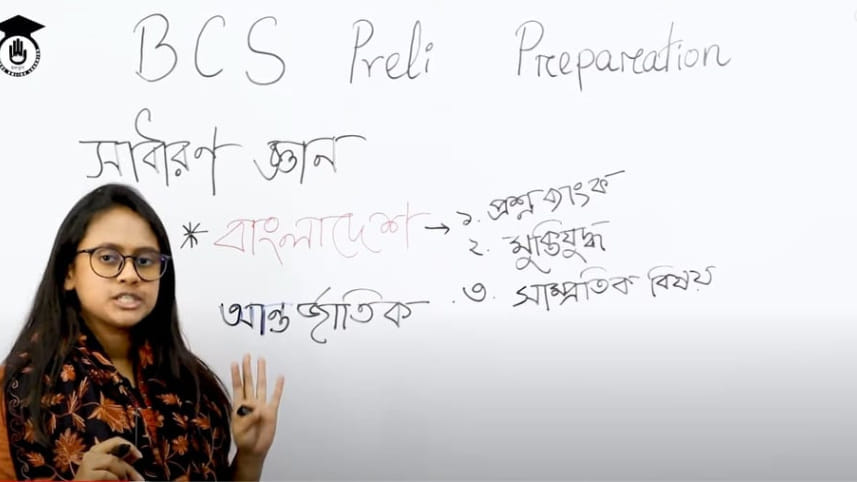 BCS Preli Preparation
সাধারণ জ্ঞান
* বাংলাদেশ → ১. প্রশ্ন ব্যাংক
২. মুক্তিযুদ্ধ
আন্তর্জাতিক
৩. সাম্প্রতিক বিষয়